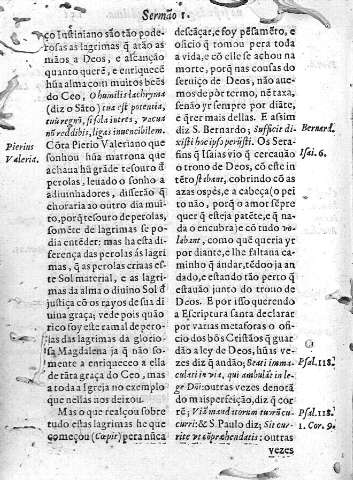 Sermão 1.
ço Iustiniano são tão pode-
rosas as lagrimas q̃ atão as
mãos a Deos, e alcanção
quanto querẽ, e enriquecẽ
hũa alma com muitos beẽs
do Ceo, O humilis lachryma
(diz o Sãto) tua est potentia,
tuũ regnũ, si sola intres, vacua
nũ redibis, ligas invencibilem.
Cõta Pierio Valeriano que
sonhou hũa matrona que
achaua hũ grãde tesouro d̃
perolas, leuado o sonho a
adiuinhadores, disserão q̃
choraria ao outro dia mui-
to, porq̃ tesouro de perolas,
somẽte de lagrimas se po-
dia entẽder: mas ha esta di-
ferença das perolas ás lagri
mas, q̃ as perolas cria as es-
te Sol material, e as lagri-
mas da alma o diuino Sol d̃
justiça cõ os rayos de sua di-
uina graça; vede pois quão
rico foy este ramal de pero-
las das lagrimas da glorio-
sa Magdalena ja q̃ não so-
mente a enriqueceo a ella
de tãta graça do Ceo, mas
a toda a Igreja no exemplo
que nellas nos deixou.
Mas o que realçou sobre
tudo estas lagrimas he que
começou (Cœpit) pera nũca
Pierius
Valeria.
descãçar, e foy pẽsamẽto, e
oficio q̃ tomou pera toda
a vida, e cõ elle se achou na
morte, porq̃ nas cousas do
seruiço de Deos, não aue-
mos de pòr termo, nẽ taxa,
senão yr sempre por diãte,
e q̃rer mais dellas. E assim
diz S. Bernardo; Sufficit di-
xisti hoc ipso perijsti. Os Sera-
fins q̃ Isaias vio q̃ cercauão
o trono de Deos, cõ este in
tẽto stabant, cobrindo cõ as
azas os pès, e a cabeça (o pei
to não, porq̃ o amor sẽpre
quer q̃ esteja patẽte, e q̃ na-
da o encubra) e cõ tudo vo-
labant, como quẽ queria yr
por diante, e lhe faltaua ca-
minho q̃ andar, tẽdoo ja an
dado, e estando tão perto q̃
estauão junto do trono de
Deos. E por isso querendo
a Escriptura santa declarar
por varias metaforas o ofi-
cio dos bõs Christãos q̃ guar
dão a ley de Deos, hũas ve-
zes diz q̃ andão; Beati imma
culati in via, qui ambulãt in le-
ge Dñi: outras vezes denotã
do mais perfeição, diz q̃ cor
rẽ; Viã mandatorum tuorũ cu-
curri: & S. Paulo diz; Sic cur-
rite vt cõprehendatis: outras
vezes
Bernard.
Isai. 6.
Psal. 118.
Psal. 118.
1. Cor. 9.